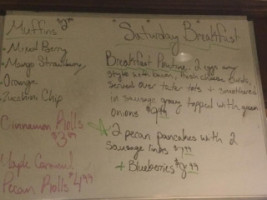 Muffins $2.99
- Mixed Berry
- Mango Strawberry
- Orange
- Zucchini Chip
Cinnamon Rolls
$3.99
Maple Caramel
Pecan Rolls $4.99
"Saturday" Breakfast
Breakfast 2 eggs any
style with bacon,
served over tater tots + smothered
in sausage gravy topped with green
onions
2 pecan pancakes with 2
sausage links
+ Blueberries